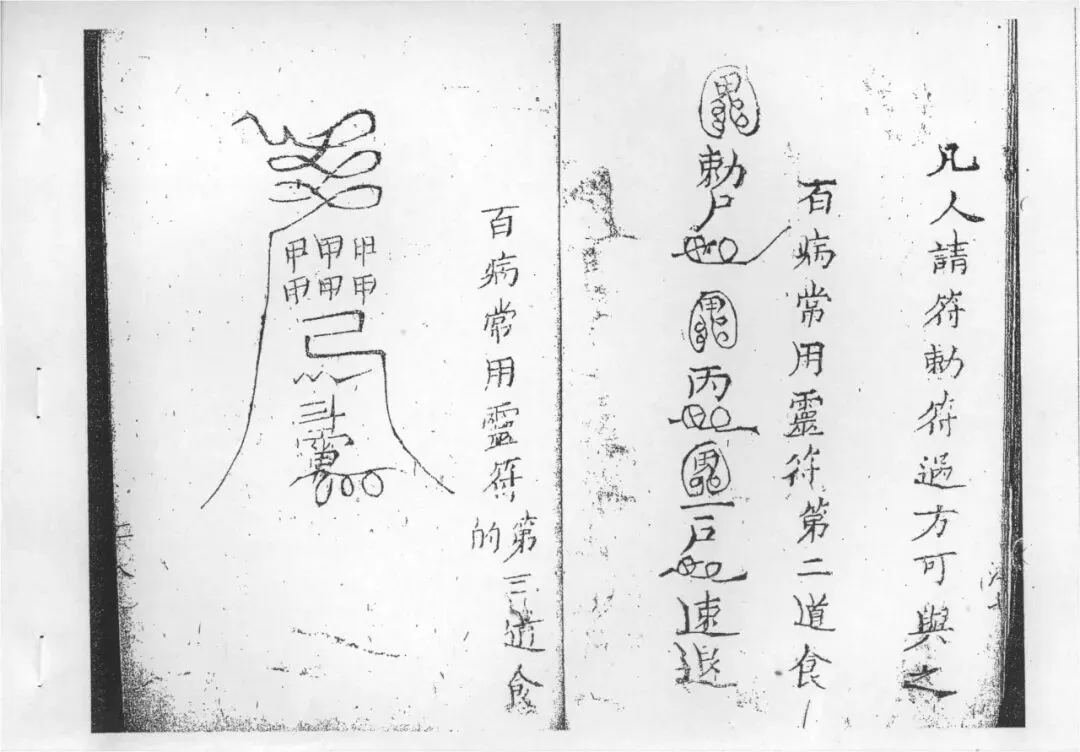 凡人請符勅符過方可與之
百病常用靈符第二道食
勅尸
丙
尸
速退
百病常用靈符第三道食
的
甲甲甲
甲甲甲
斗